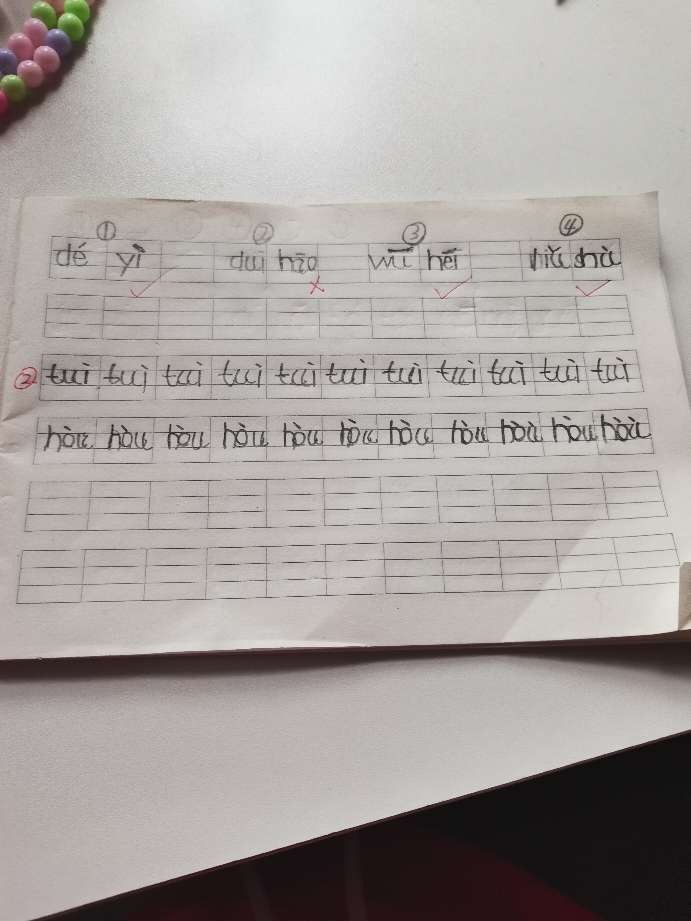 ① ② ③ ④
dé yì duì hāo wū hēi
② tuì tuì tuì tuì tuì tuì tuì tuì tuì tuì tuì
hòu hòu hòu hòu hòu hòu hòu hòu hòu hòu hòu